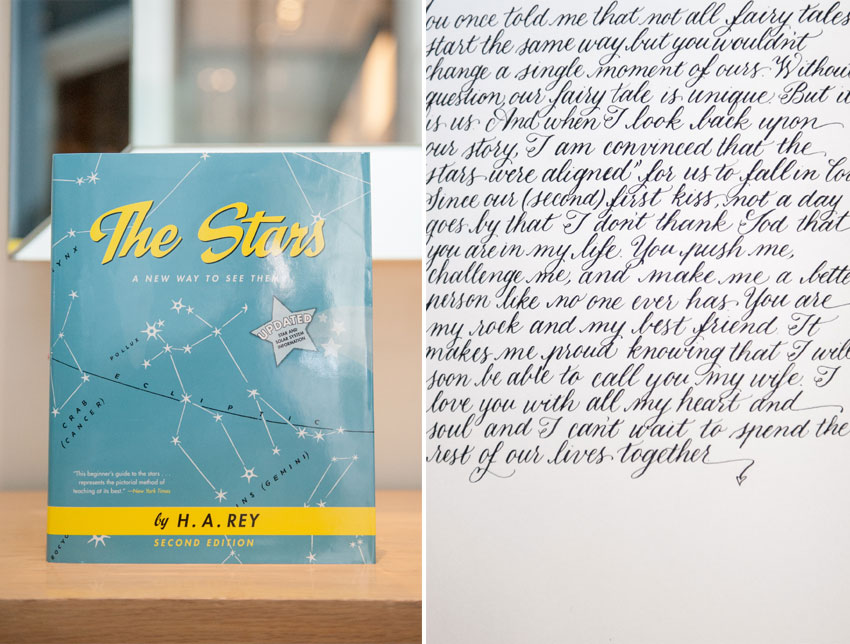 The Stars
A NEW WAY TO SEE THEM
UPDATED
STAR AND
SOLAR SYSTEM
INFORMATION
LYNX
POLLUX
ECLIPTIC
CRAB
(CANCER)
INS (GEMINI)
"This beginner's guide to the stars . . .
represents the pictorial method of
teaching at its best." —New York Times
by H. A. REY
SECOND EDITION
ou once told me that not all fairy tales
start the same way, but you wouldn't
change a single moment of ours. Without
question, our fairy tale is unique. But it
is us. And when I look back upon
our story, I am convinced that the
stars were aligned" for us to fall in lov
Since our (second) first kiss, not a day
goes by that I don't thank God that
you are in my life. You push me,
challenge me, and make me a bette
person like no one ever has. You are
my rock and my best friend. It
makes me proud knowing that I will
soon be able to call you my wife. I
love you with all my heart and
soul and I can't wait to spend the
rest of our lives together